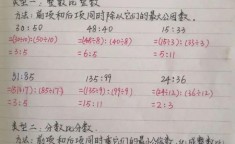 类型一：整数比整数
方法：前项和后项同时除以它们的最大公因数。
30:50 48:40 15:33
=(30÷10):(50÷10) =(48÷8):(40÷8) =(15÷3):(33÷3)
=3:5 =6:5 =5:11
51:85 135:99 24:36
=(51÷17):(85÷17) =(135÷9):(99÷9) =(24÷12):(36÷12)
=3:5 =15:11 =2:3
类型二：分数比分数
方法：前项和后项同时乘它们的最小公倍数